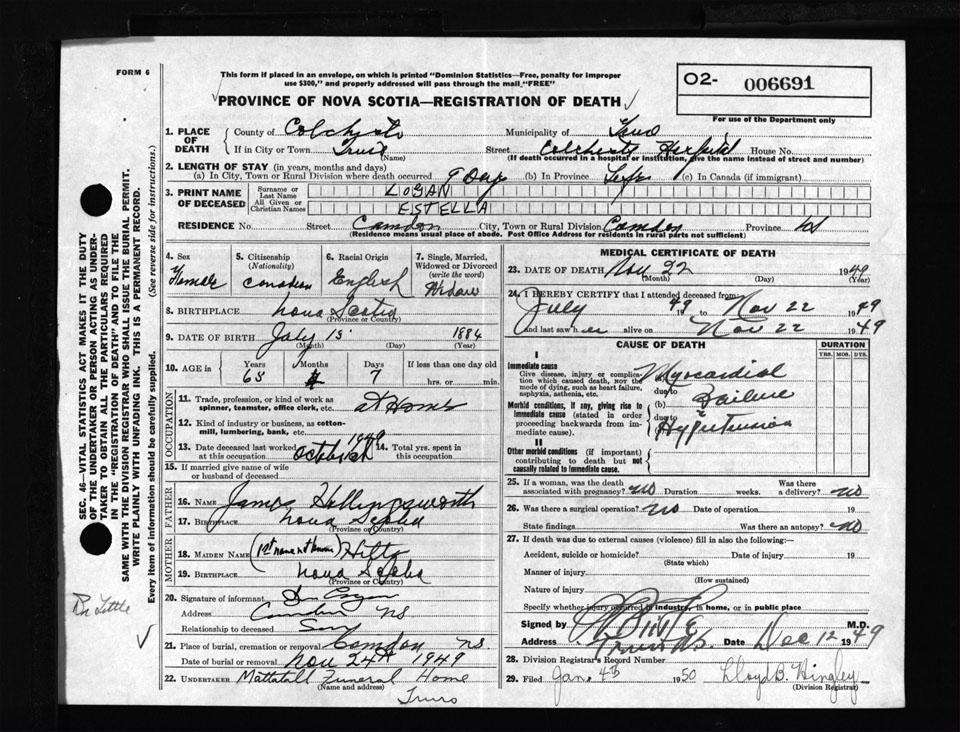 FORM 6
This form if placed in an envelope, on which is printed "Dominion Statistics—Free, penalty for improper
use $300," and properly addressed will pass through the mail "FREE"
PROVINCE OF NOVA SCOTIA—REGISTRATION OF DEATH
O2- 006691
For use of the Department only
SEC. 46—VITAL STATISTICS ACT MAKES IT THE DUTY
OF THE UNDERTAKER OR PERSON ACTING AS UNDER-
TAKER TO OBTAIN ALL THE PARTICULARS REQUIRED
IN THE "REGISTRATION OF DEATH" AND TO FILE THE
SAME WITH THE DIVISION REGISTRAR WHO SHALL ISSUE THE BURIAL PERMIT.
WRITE PLAINLY WITH UNFADING INK. THIS IS A PERMANENT RECORD.
Every item of information should be carefully supplied. (See reverse side for instructions.)
1. PLACE OF DEATH County of Colchester Municipality of Truro
If in City or Town Truro (Name) Street Colchester Hospital House No.
(If death occurred in a hospital or institution, give the name instead of street and number)
2. LENGTH OF STAY (in years, months and days)
(a) In City, Town or Rural Division where death occurred 9 Days (b) In Province Life (c) In Canada (if immigrant)
3. PRINT NAME OF DECEASED Surname or Last Name LOGAN
All Given or Christian Names ESTELLA
RESIDENCE No. Street Camden City, Town or Rural Division Camden Province NS
(Residence means usual place of abode. Post Office Address for residents in rural parts not sufficient)
4. Sex Female
5. Citizenship (Nationality) Canadian
6. Racial Origin English
7. Single, Married, Widowed or Divorced (write the word) Widow
8. BIRTHPLACE Nova Scotia (Province or Country)
9. DATE OF BIRTH July 15 1884
(Month) (Day) (Year)
10. AGE in Years 65 Months 4 Days 7 If less than one day old
hrs. or min.
OCCUPATION
11. Trade, profession or kind of work as
spinner, teamster, office clerk, etc. at Home
12. Kind of industry or business, as cotton-
mill, lumbering, bank, etc.
13. Date deceased last worked at this occupation October 1949 14. Total yrs. spent in this occupation
15. If married give name of wife
or husband of deceased
FATHER
16. NAME James Hollingsworth
17. Birthplace Nova Scotia (Province or Country)
MOTHER
18. MAIDEN NAME (1st name not known) Hiltz
19. BIRTHPLACE Nova Scotia
(Province or Country)
20. Signature of informant
Address Camden NS
Relationship to deceased Son
21. Place of burial, cremation or removal Camden NS.
Date of burial or removal Nov 24th 1949
22. UNDERTAKER Mattatall Funeral Home
(Name and address) Truro
MEDICAL CERTIFICATE OF DEATH
23. DATE OF DEATH Nov 22 1949
(Month) (Day) (Year)
24. I HEREBY CERTIFY that I attended deceased from
July 49 to Nov 22 1949
and last saw her alive on Nov 22 1949
CAUSE OF DEATH
DURATION
YRS. MOS. DYS.
I
Immediate cause
Give disease, injury or complica-
tion which caused death, not the
mode of dying, such as heart failure,
asphyxia, asthenia, etc.
Myocardial
due to
(b) Failure
Morbid conditions, if any, giving rise to
immediate cause (stated in order
proceeding backwards from im-
mediate cause).
due to
Hypertension
II
Other morbid conditions (if important)
contributing to death but not
causally related to immediate cause.
25. If a woman, was the death
associated with pregnancy? no Duration weeks. Was there a delivery? no
26. Was there a surgical operation? No Date of operation 19
State findings Was there an autopsy? no
27. If death was due to external causes (violence) fill in also the following:—
Accident, suicide or homicide? Date of injury 19
(State which)
Manner of injury
(How sustained)
Nature of injury
Specify whether injury occurred in industry, in home, or in public place
Signed by M.D.
Address Truro N.S. Date Dec 12 1949
28. Division Registrar's Record Number
29. Filed Jan. 4th 1950 Lloyd B. Hingley
(Division Registrar)
Little